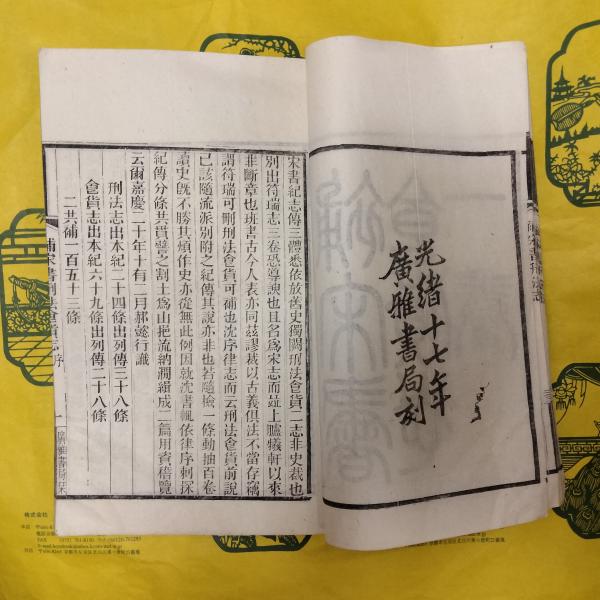 光緒十七年
廣雅書局刻
宋書紀志傳三體悉依放舊史獨闕刑法食貨二志非史裁也
別出符瑞志三卷恐尊諛也且名爲宋志而竝上臚犧軒以來
非斷章也班書古今人表亦同茲謬裁以古義俱法不當存竊
謂符瑞可刪刑法食貨可補也沈序律志而云刑法食貨前說
已該隨流派別附之紀傳其說亦非也若隨撿一條動抽百卷
讀史旣不勝其煩作史亦從無此例因就沈書輒依律序刺探
紀傳分條共貫譬之割土爲山挹流納澗緝成二篇用資稽覽
云爾嘉慶二十年十有二月郝懿行識
刑法志出本紀二十四條出列傳三十八條
食貨志出本紀六十九條出列傳二十八條
二共補一百五十三條
補宋書刑法食貨志 序
一
廣雅書局栞
株式会社